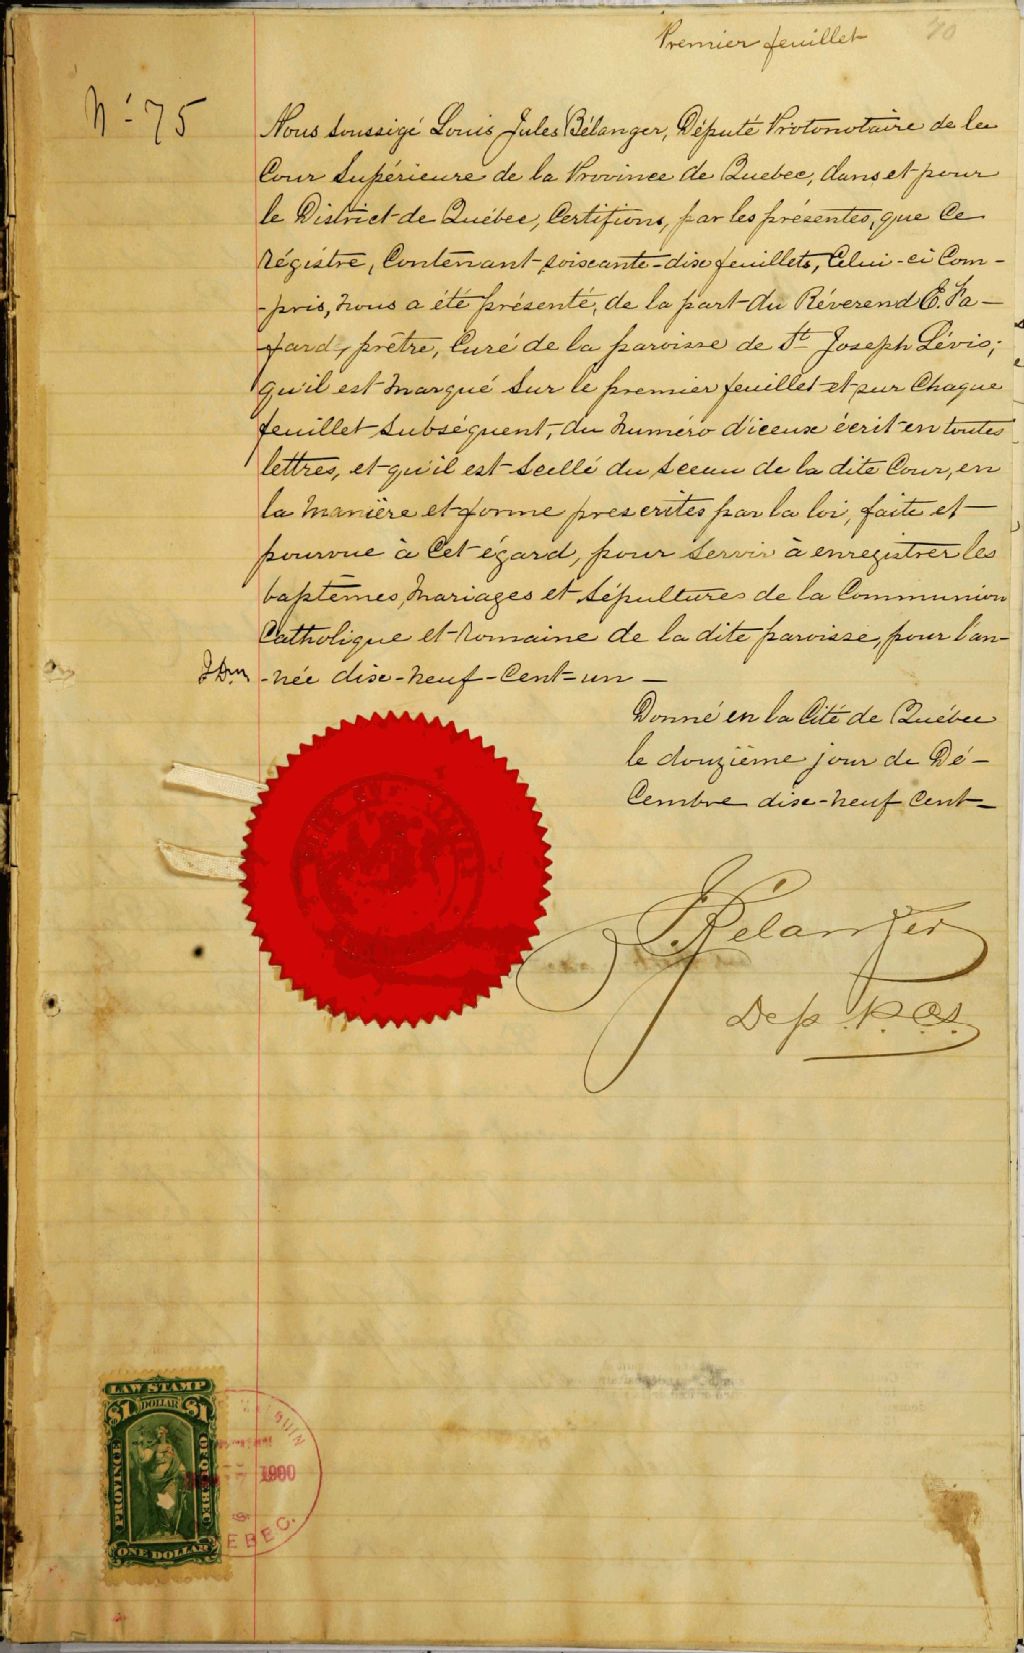 Premier feuillet
70
No 75
Nous soussigé Louis Jules Bélanger, Député Protonotaire de la
Cour Supérieure de la Province de Quebec, dans et pour
le District de Québec, Certifions, par les présentes, que Ce
régistre, Contenant soixante-dix feuillets, Celui-ci Com-
-pris, nous a été présenté, de la part du Réverend E. Fa-
-fard, prêtre, Curé de la paroisse de St Joseph Lévis;
qu'il est marqué sur le premier feuillet et sur Chaque
feuillet subséquent, du numéro d'iceux écrit en toutes
lettres, et qu'il est Scellé du sceau de la dite Cour, en
la manière et forme prescrites par la loi, faite et
pourvue à Cet égard, pour servir à enregistrer les
baptêmes, mariages et sépultures de la Communion
Catholique et romaine de la dite paroisse, pour l'an-
-née dix-neuf-Cent-un-
Donné en la Cité de Québec
le douzième jour de Dé-
Cembre dix-neuf Cent-
Bélanger
Dep. P.C.S.
LAW STAMP
$1 DOLLAR $1
PROVINCE OF QUEBEC
ONE DOLLAR
1900
QUEBEC.